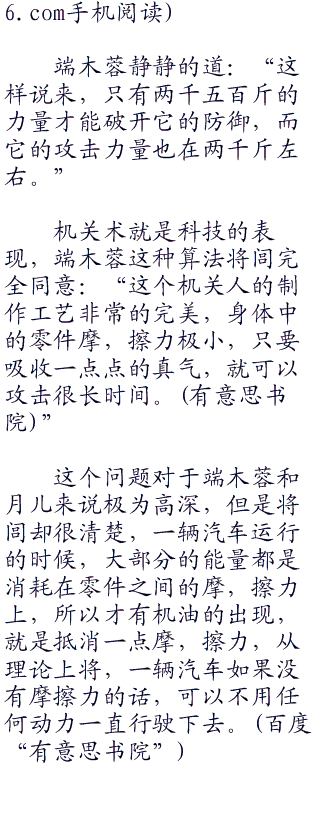 6.com手机阅读)
端木蓉静静的道：“这
样说来，只有两千五百斤的
力量才能破开它的防御，而
它的攻击力量也在两千斤左
右。”
机关术就是科技的表
现，端木蓉这种算法将闾完
全同意：“这个机关人的制
作工艺非常的完美，身体中
的零件摩，擦力极小，只要
吸收一点点的真气，就可以
攻击很长时间。(有意思书
院)”
这个问题对于端木蓉和
月儿来说极为高深，但是将
闾却很清楚，一辆汽车运行
的时候，大部分的能量都是
消耗在零件之间的摩，擦力
上，所以才有机油的出现，
就是抵消一点摩，擦力，从
理论上将，一辆汽车如果没
有摩擦力的话，可以不用任
何动力一直行驶下去。(百度
“有意思书院”)